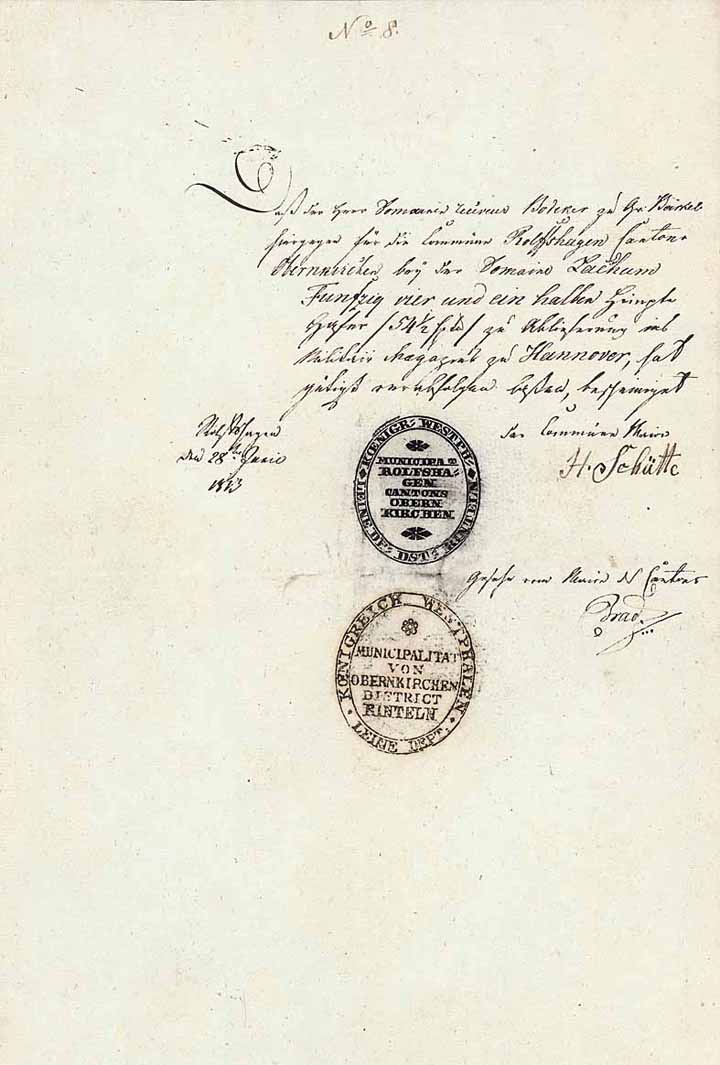 No 8.
Daß der Herr Domainen Bödeker zu Gr.
hiergegen für die Commüne Rolfshagen Cantons
Obernkirchen bey der Domaine Lachem
Funfzig vier und ein halben Himpte
Hafer /54 1/2 / zu Ablieferung ins
Militair Magazin zu Hannover, hat
gütigst verabfolgen laßen, bescheiniget
Rolfshagen
den 28ten Junii
1813
der Commüne Maire
H. Schütte
KŒNIGR: WESTPH: DST: RINTELN LEINE DP:
MUNICIPA T:
ROLFSHA-
GEN
CANTONS
OBERN
KIRCHEN
Gesehn vom Maire d Cantons
KŒNIGREICH WESTPHALEN
MUNICIPALITAT
VON
OBERNKIRCHEN
DISTRICT
RINTELN
LEINE DEPT.